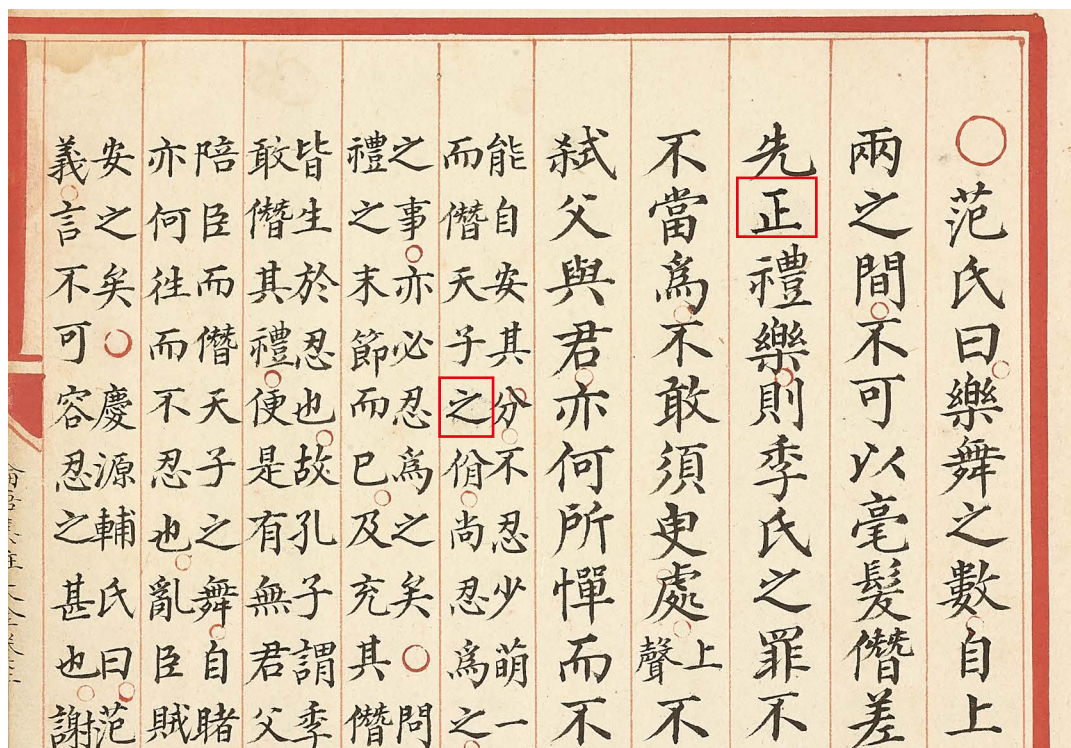 ○范氏曰樂舞之數自上
兩之間不可以毫髮僣差
先正禮樂則季氏之罪不
不當爲不敢須臾處上聲不
弑父與君亦何所憚而不
能自安其分不忍少萌一
而僣天子之佾尚忍爲之
之事亦必忍爲之矣○問
禮之末節而已及充其僣
皆生於忍也故孔子謂季
敢僣其禮便是有無君父
陪臣而僣天子之舞自睹
亦何徃而不忍也亂臣賊
安之矣○慶源輔氏曰范
義言不可容忍之甚也謝